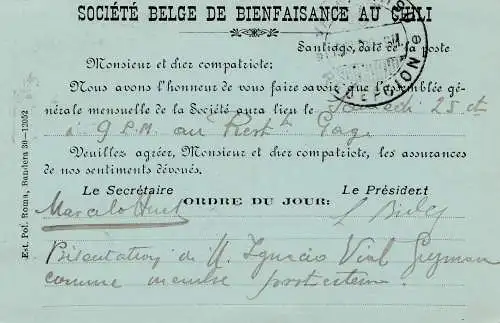 SOCIÉTÉ BELGE DE BIENFAISANCE AU CHILI
Santiago, date de la poste
Monsieur et cher compatriote:
Nous avons l'honneur de vous faire savoir que l'assemblée gé-
nérale mensuelle de la Société aura lieu le Samedi 25 ct
à 9 P.M. au Restt Gage
Veuillez agréer, Monsieur et cher compatriote, les assurances
de nos sentiments dévoués.
Le Secrétaire Le Président
ORDRE DU JOUR:
Marcelo Huet
Présentation de M. Ignacio Vial Guzman
comme membre protecteur
Est. Pol. Roma, Bandera 30-12052